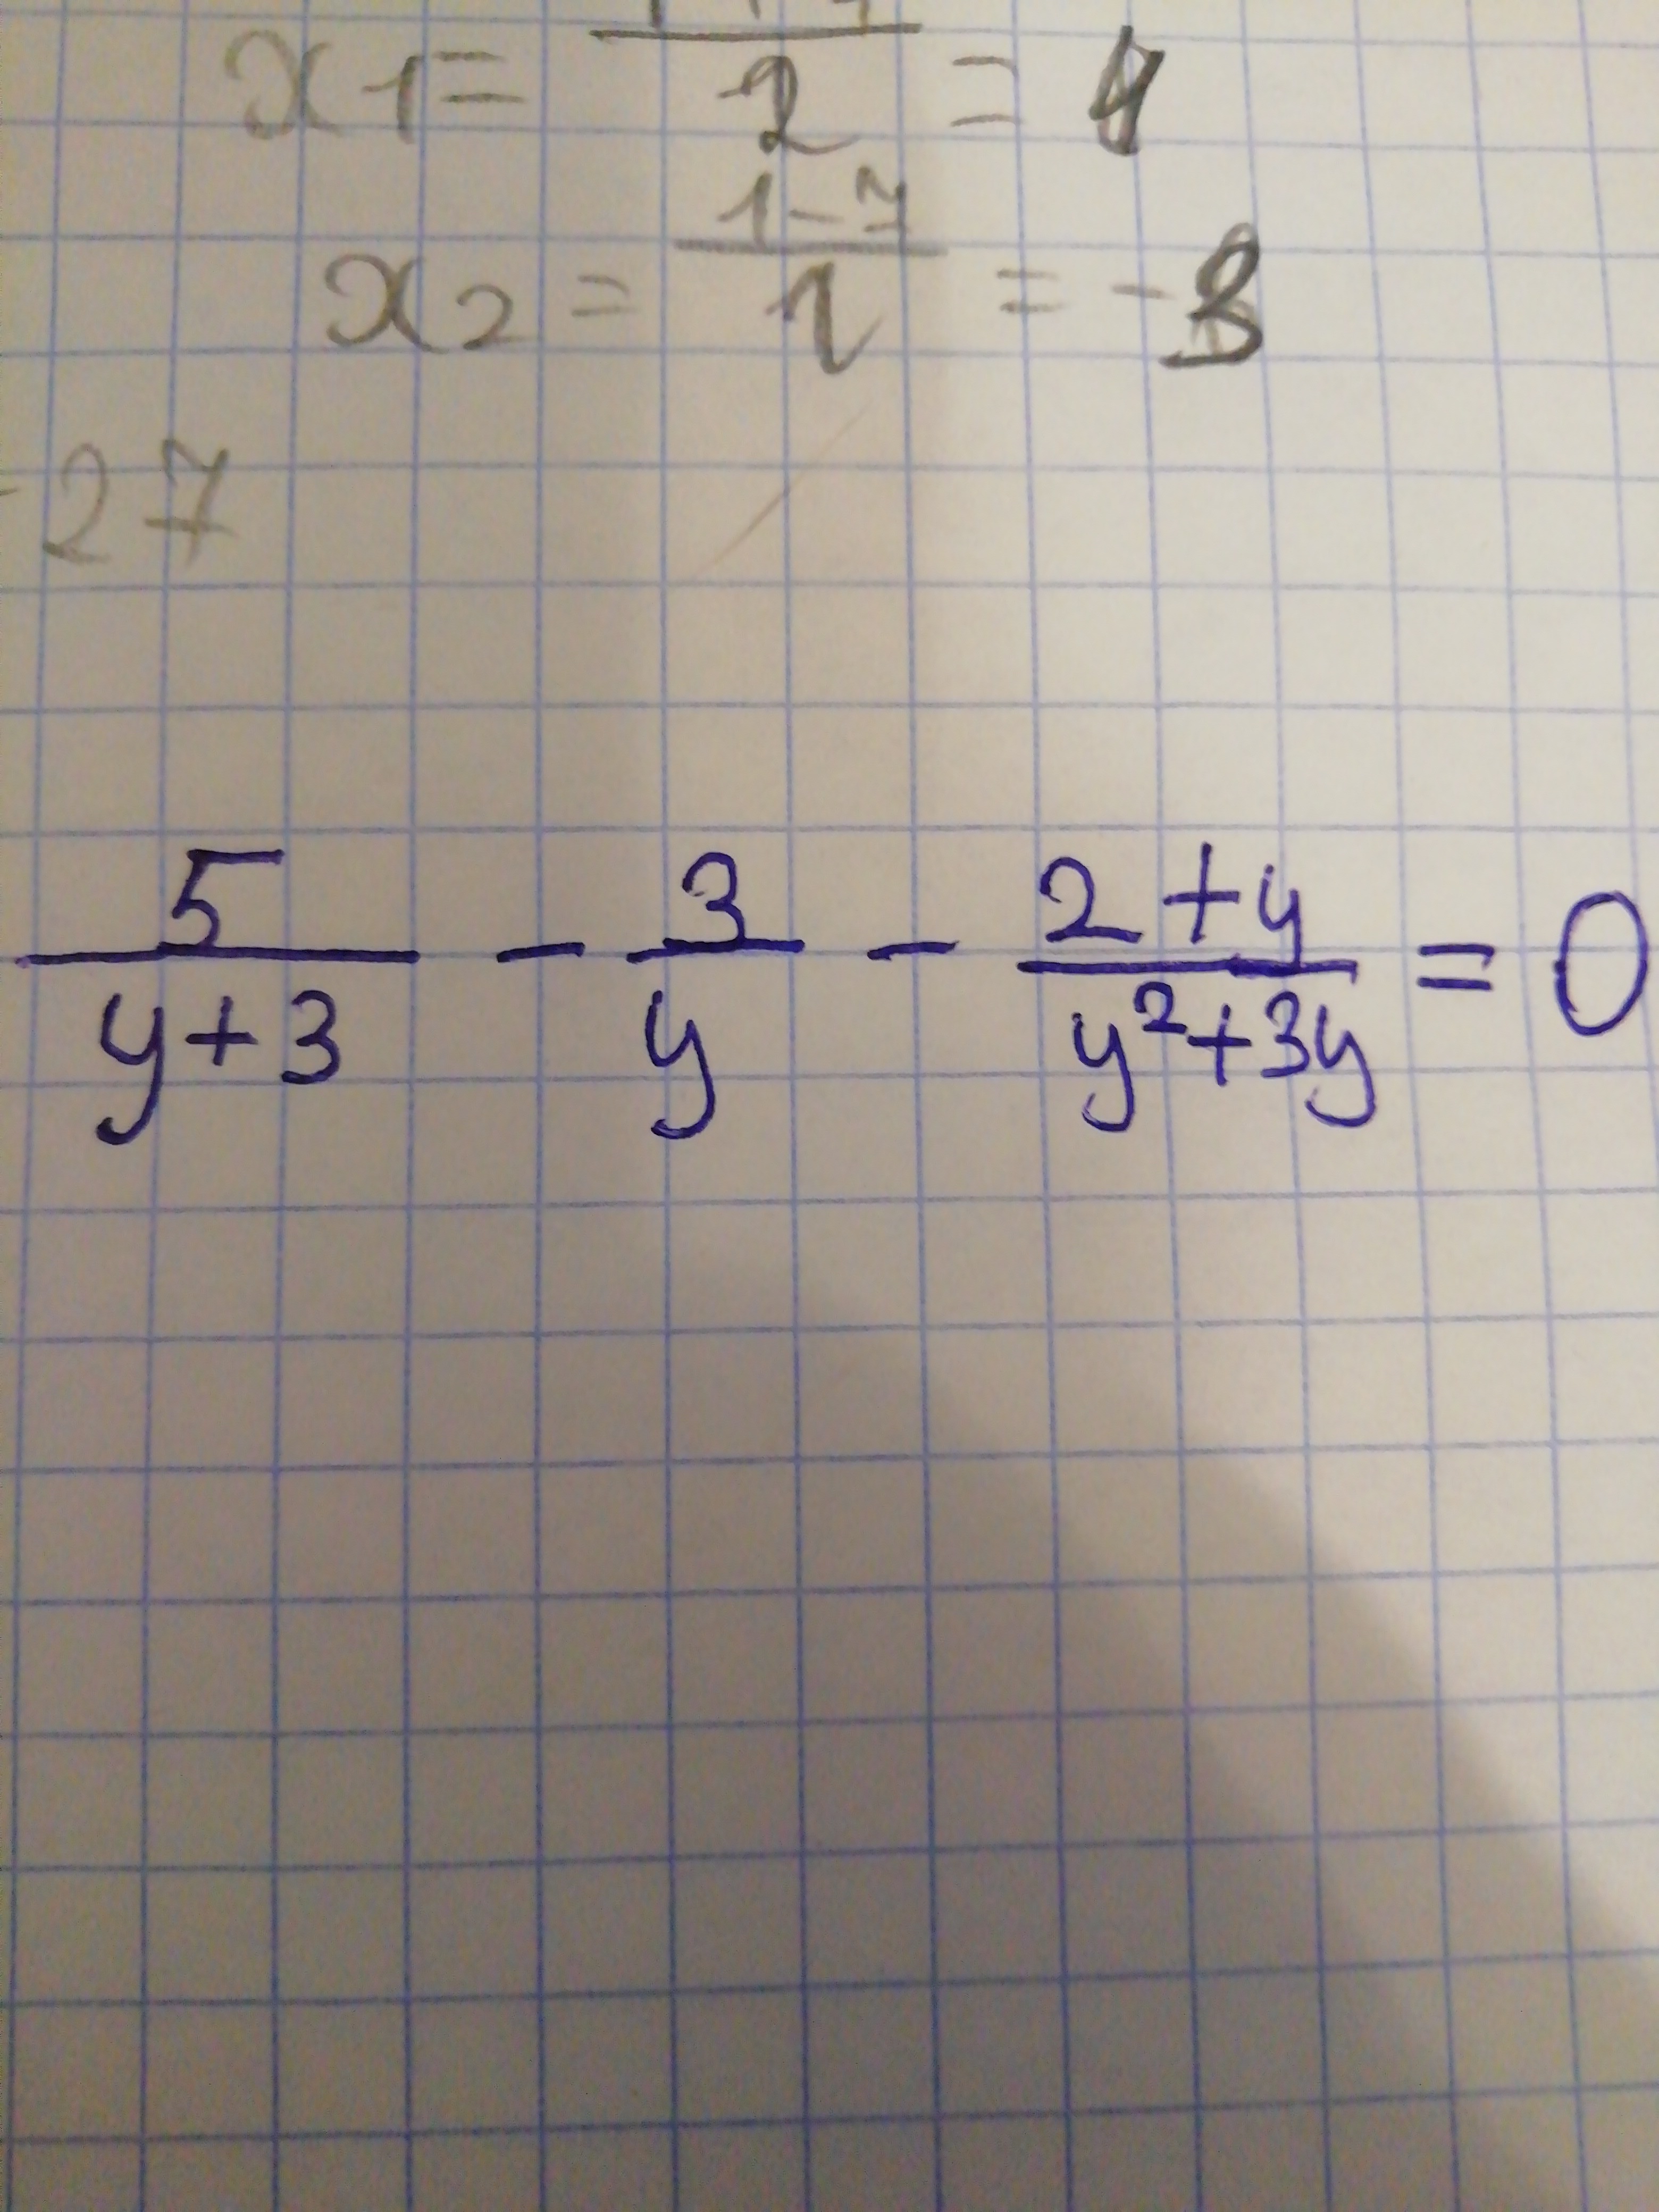 x1= /2 = 4
x2 = (1-7)/2 = -3
-27
5/(y+3) - 3/y - (2+y)/(y²+3y) = 0